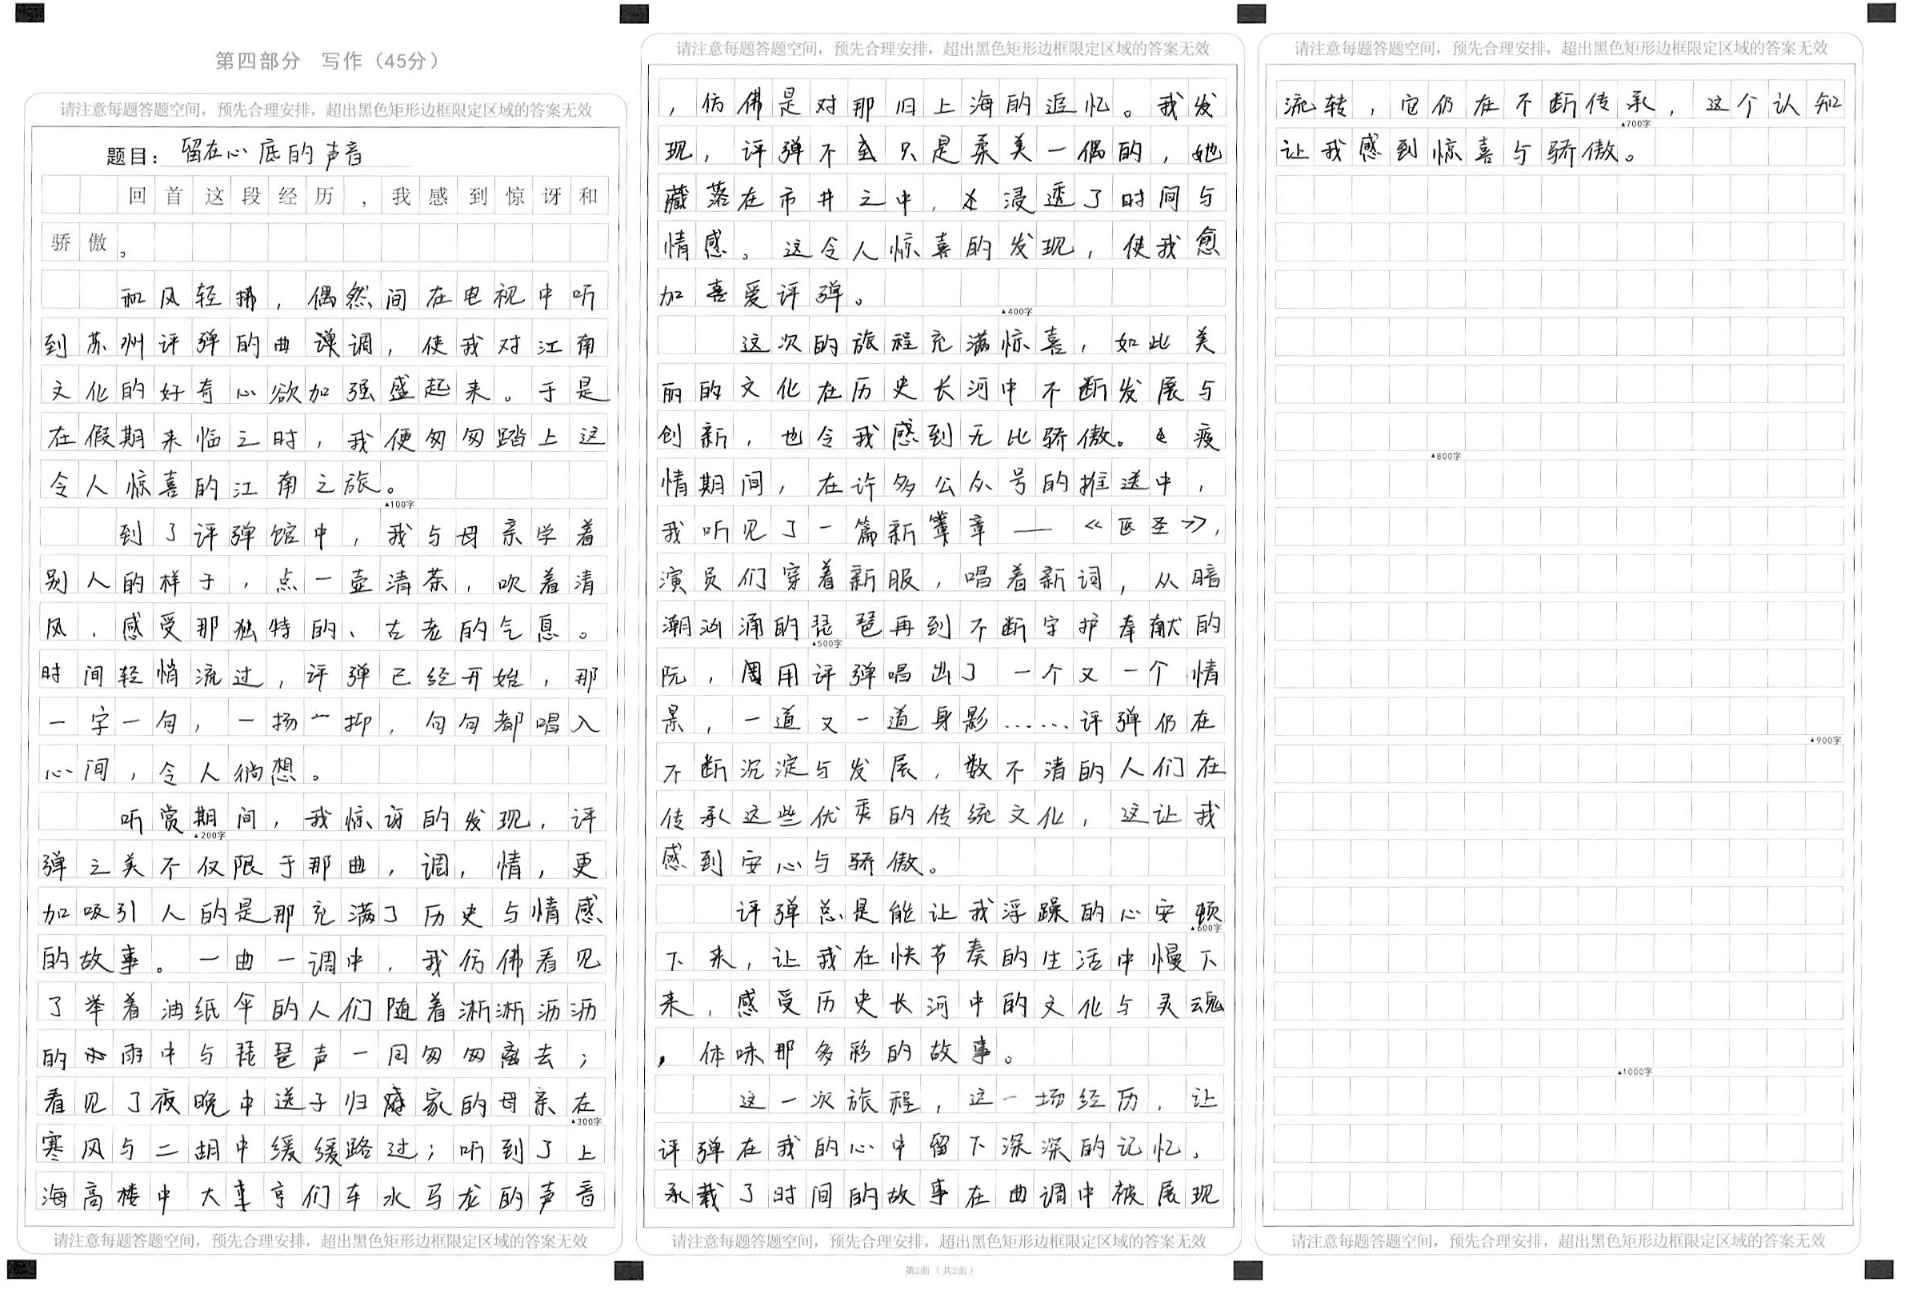 第四部分 写作（45分）
请注意每题答题空间，预先合理安排，超出黑色矩形边框限定区域的答案无效
题目：留在心底的声音
回首这段经历，我感到惊讶和
骄傲。
和风轻拂，偶然间在电视中听
到苏州评弹的曲调，使我对江南
文化的好奇心欲加强盛起来。于是
在假期来临之时，我便匆匆踏上这
令人惊喜的江南之旅。
▲100字
到了评弹馆中，我与母亲学着
别人的样子，点一壶清茶，吹着清
风，感受那独特的、古老的气息。
时间轻悄流过，评弹已经开始，那
一字一句，一扬一抑，句句都唱入
心间，令人徜想。
听赏期间，我惊讶的发现，评
▲200字
弹之美不仅限于那曲，调，情，更
加吸引人的是那充满了历史与情感
的故事。一曲一调中，我仿佛看见
了举着油纸伞的人们随着淅淅沥沥
的雨中与琵琶声一同匆匆离去；
看见了夜晚中送子归家的母亲在
▲300字
寒风与二胡中缓缓路过；听到了上
海高楼中大亨们车水马龙的声音
请注意每题答题空间，预先合理安排，超出黑色矩形边框限定区域的答案无效
请注意每题答题空间，预先合理安排，超出黑色矩形边框限定区域的答案无效
，仿佛是对那旧上海的追忆。我发
现，评弹不只是柔美一偶的，她
藏落在市井之中，浸透了时间与
情感。这令人惊喜的发现，使我愈
加喜爱评弹。
▲400字
这次的旅程充满惊喜，如此美
丽的文化在历史长河中不断发展与
创新，也令我感到无比骄傲。疫
情期间，在许多公众号的推送中，
我听见了一篇新章——《医圣》，
演员们穿着新服，唱着新词，从暗
潮汹涌的琵琶再到不断守护奉献的
▲500字
阮，用评弹唱出了一个又一个情
景，一道又一道身影……评弹仍在
不断沉淀与发展，数不清的人们在
传承这些优秀的传统文化，这让我
感到安心与骄傲。
评弹总是能让我浮躁的心安顿
▲600字
下来，让我在快节奏的生活中慢下
来，感受历史长河中的文化与灵魂
，体味那多彩的故事。
这一次旅程，这一场经历，让
评弹在我的心中留下深深的记忆。
承载了时间的故事在曲调中被展现
请注意每题答题空间，预先合理安排，超出黑色矩形边框限定区域的答案无效
第2面（共2面）
请注意每题答题空间，预先合理安排，超出黑色矩形边框限定区域的答案无效
流转，它仍在不断传承，这个认知
▲700字
让我感到惊喜与骄傲。
▲800字
▲900字
▲1000字
请注意每题答题空间，预先合理安排，超出黑色矩形边框限定区域的答案无效